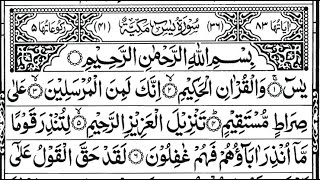 اٰیَاتُهَا ٨٣ (٣٦) سُوْرَةُ يٰسٓ مَكِّيَّةٌ (٤١) رُكُوْعَاتُهَا ٥
بِسْمِ اللّٰهِ الرَّحْمٰنِ الرَّحِيْمِ
يٰسٓ ۚ﴿١﴾ وَالْقُرْاٰنِ الْحَكِيْمِ ۙ﴿٢﴾ اِنَّكَ لَمِنَ الْمُرْسَلِيْنَ ۙ﴿٣﴾ عَلٰى
صِرَاطٍ مُّسْتَقِيْمٍ ؕ﴿٤﴾ تَنْزِيْلَ الْعَزِيْزِ الرَّحِيْمِ ۙ﴿٥﴾ لِتُنْذِرَ قَوْمًا
مَّاۤ اُنْذِرَ اٰبَآؤُهُمْ فَهُمْ غٰفِلُوْنَ ﴿٦﴾ لَقَدْ حَقَّ الْقَوْلُ عَلٰۤى